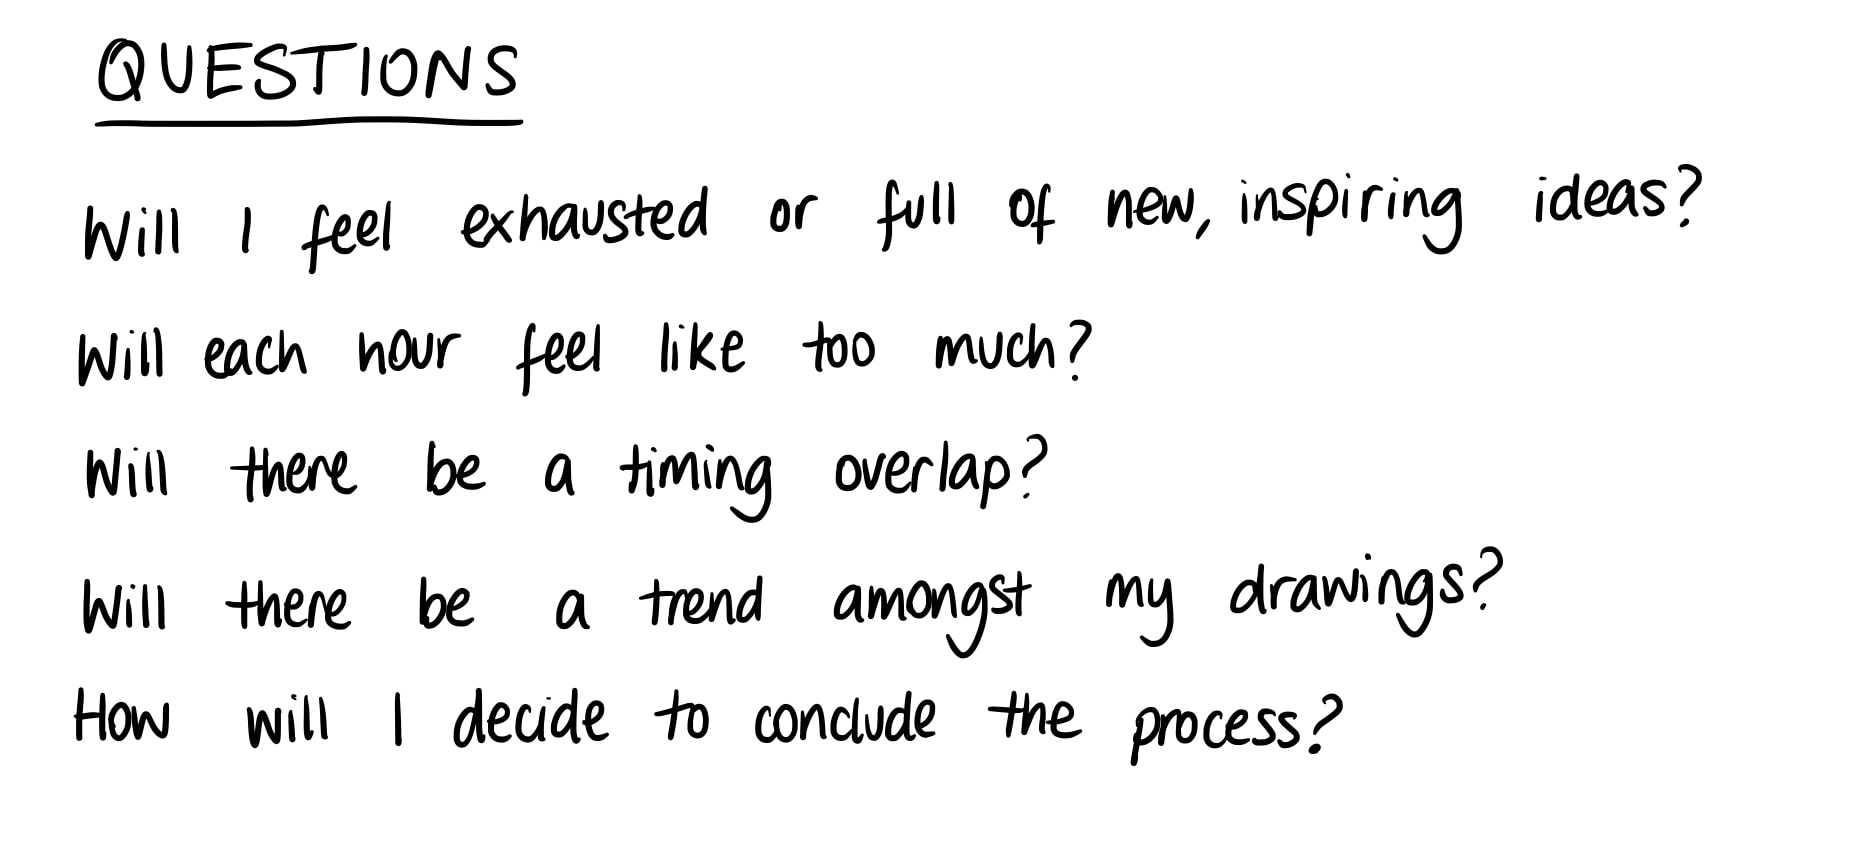 QUESTIONS
Will I feel exhausted or full of new, inspiring ideas?
Will each hour feel like too much?
Will there be a timing overlap?
Will there be a trend amongst my drawings?
How will I decide to conclude the process?